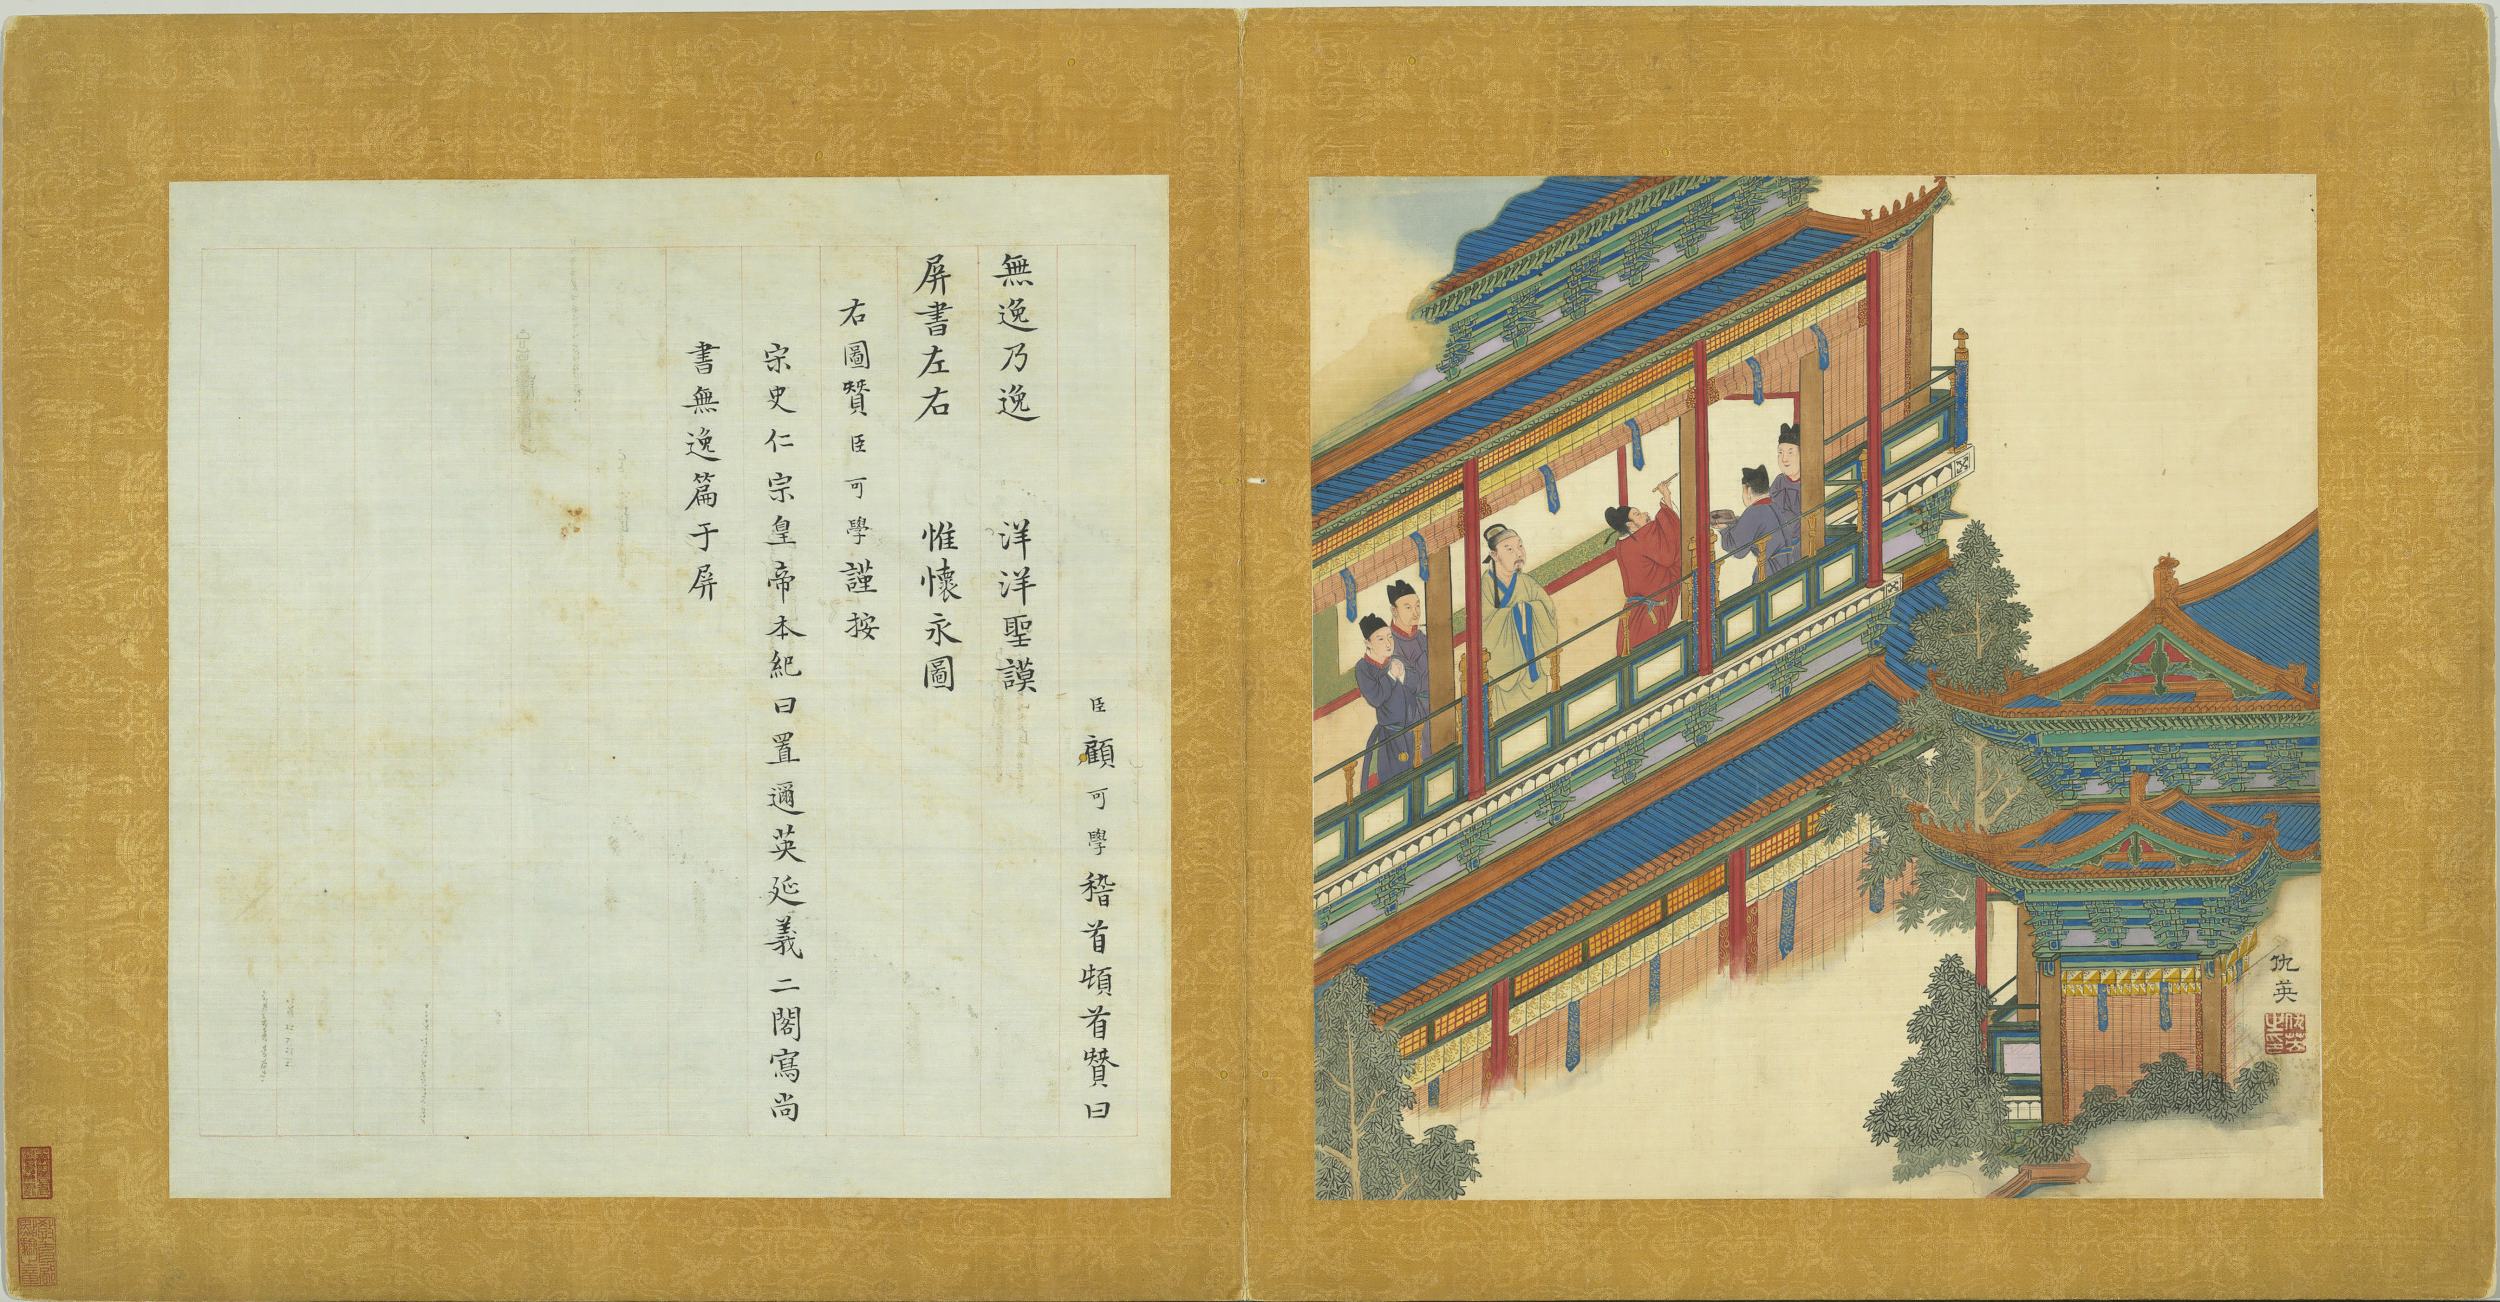 臣顧可學稽首頓首贊曰
無逸乃逸 洋洋聖謨
屏書左右 惟懷永圖
右圖贊臣可學謹按
宋史仁宗皇帝本紀曰置邇英延義二閣寫尚
書無逸篇于屏
仇英